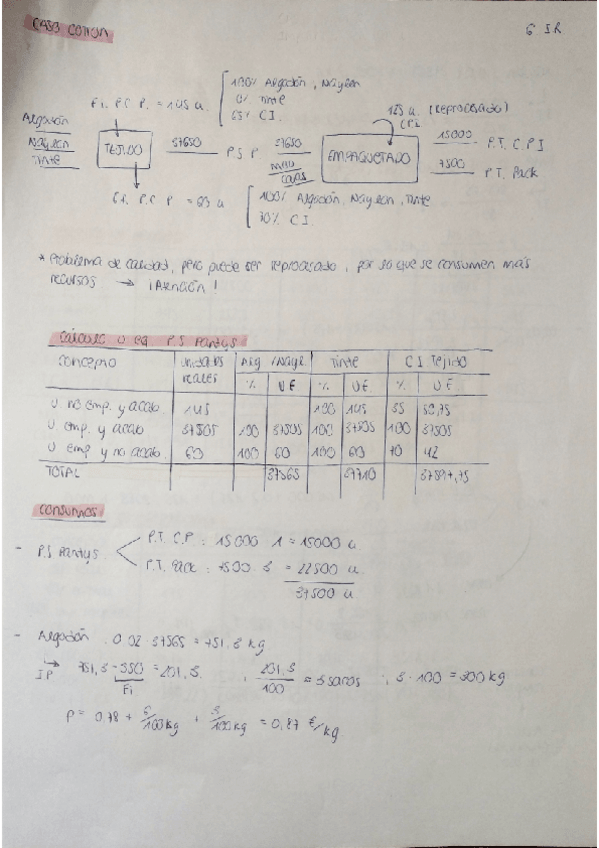 CASO COTTON
6 IR
Ei. P.C P. = 145 u.
100% Algodón, Naylon
0% Tinte
65% C.I.
125 u. (Reprocesado)
C.P.I
Algodón
Naylon
Tinte
TEJIDO
37650
P.S P
37650
MAQ
CAJAS
EMPAQUETADO
15000
P.T. C.P I
7500
P.T. Pack
Ef. P.C P = 60 u
100% Algodón, Naylon, Tinte
70% C.I.
* Problema de calidad, pero puede ser reprocesado, por lo que se consumen más
recursos → ¡Atención!
CÁLCULO U eq. P.S Pantys
Concepto Unidades reales Alg /Nayl. Tinte C I Tejido
% U E % U E % U E
U no Emp. y acab. 145 100 145 35 50,75
U. emp. y acab 37505 100 37505 100 37505 100 37505
U emp y no acab. 60 100 60 100 60 70 42
TOTAL 37565 37710 37597,75
CONSUMOS
- P.S Pantys
P.T. C.P : 15000 · 1 = 15000 u
P.T. Pack : 7500 · 3 = 22500 u.
37500 u.
- Algodón : 0.02 · 37565 = 751,3 kg
IP → 751,3 - 550 = 201,3. ; 201,3 / 100 = 3 sacos ; 3 · 100 = 300 kg
Ei
P = 0,78 + 6/100kg + 3/100kg = 0,87 €/kg.